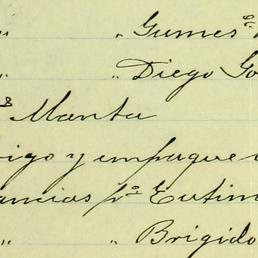 " Gumes
" Diego Go
Manta
igo y empaque
ancias pª Eutim
" " Brigido